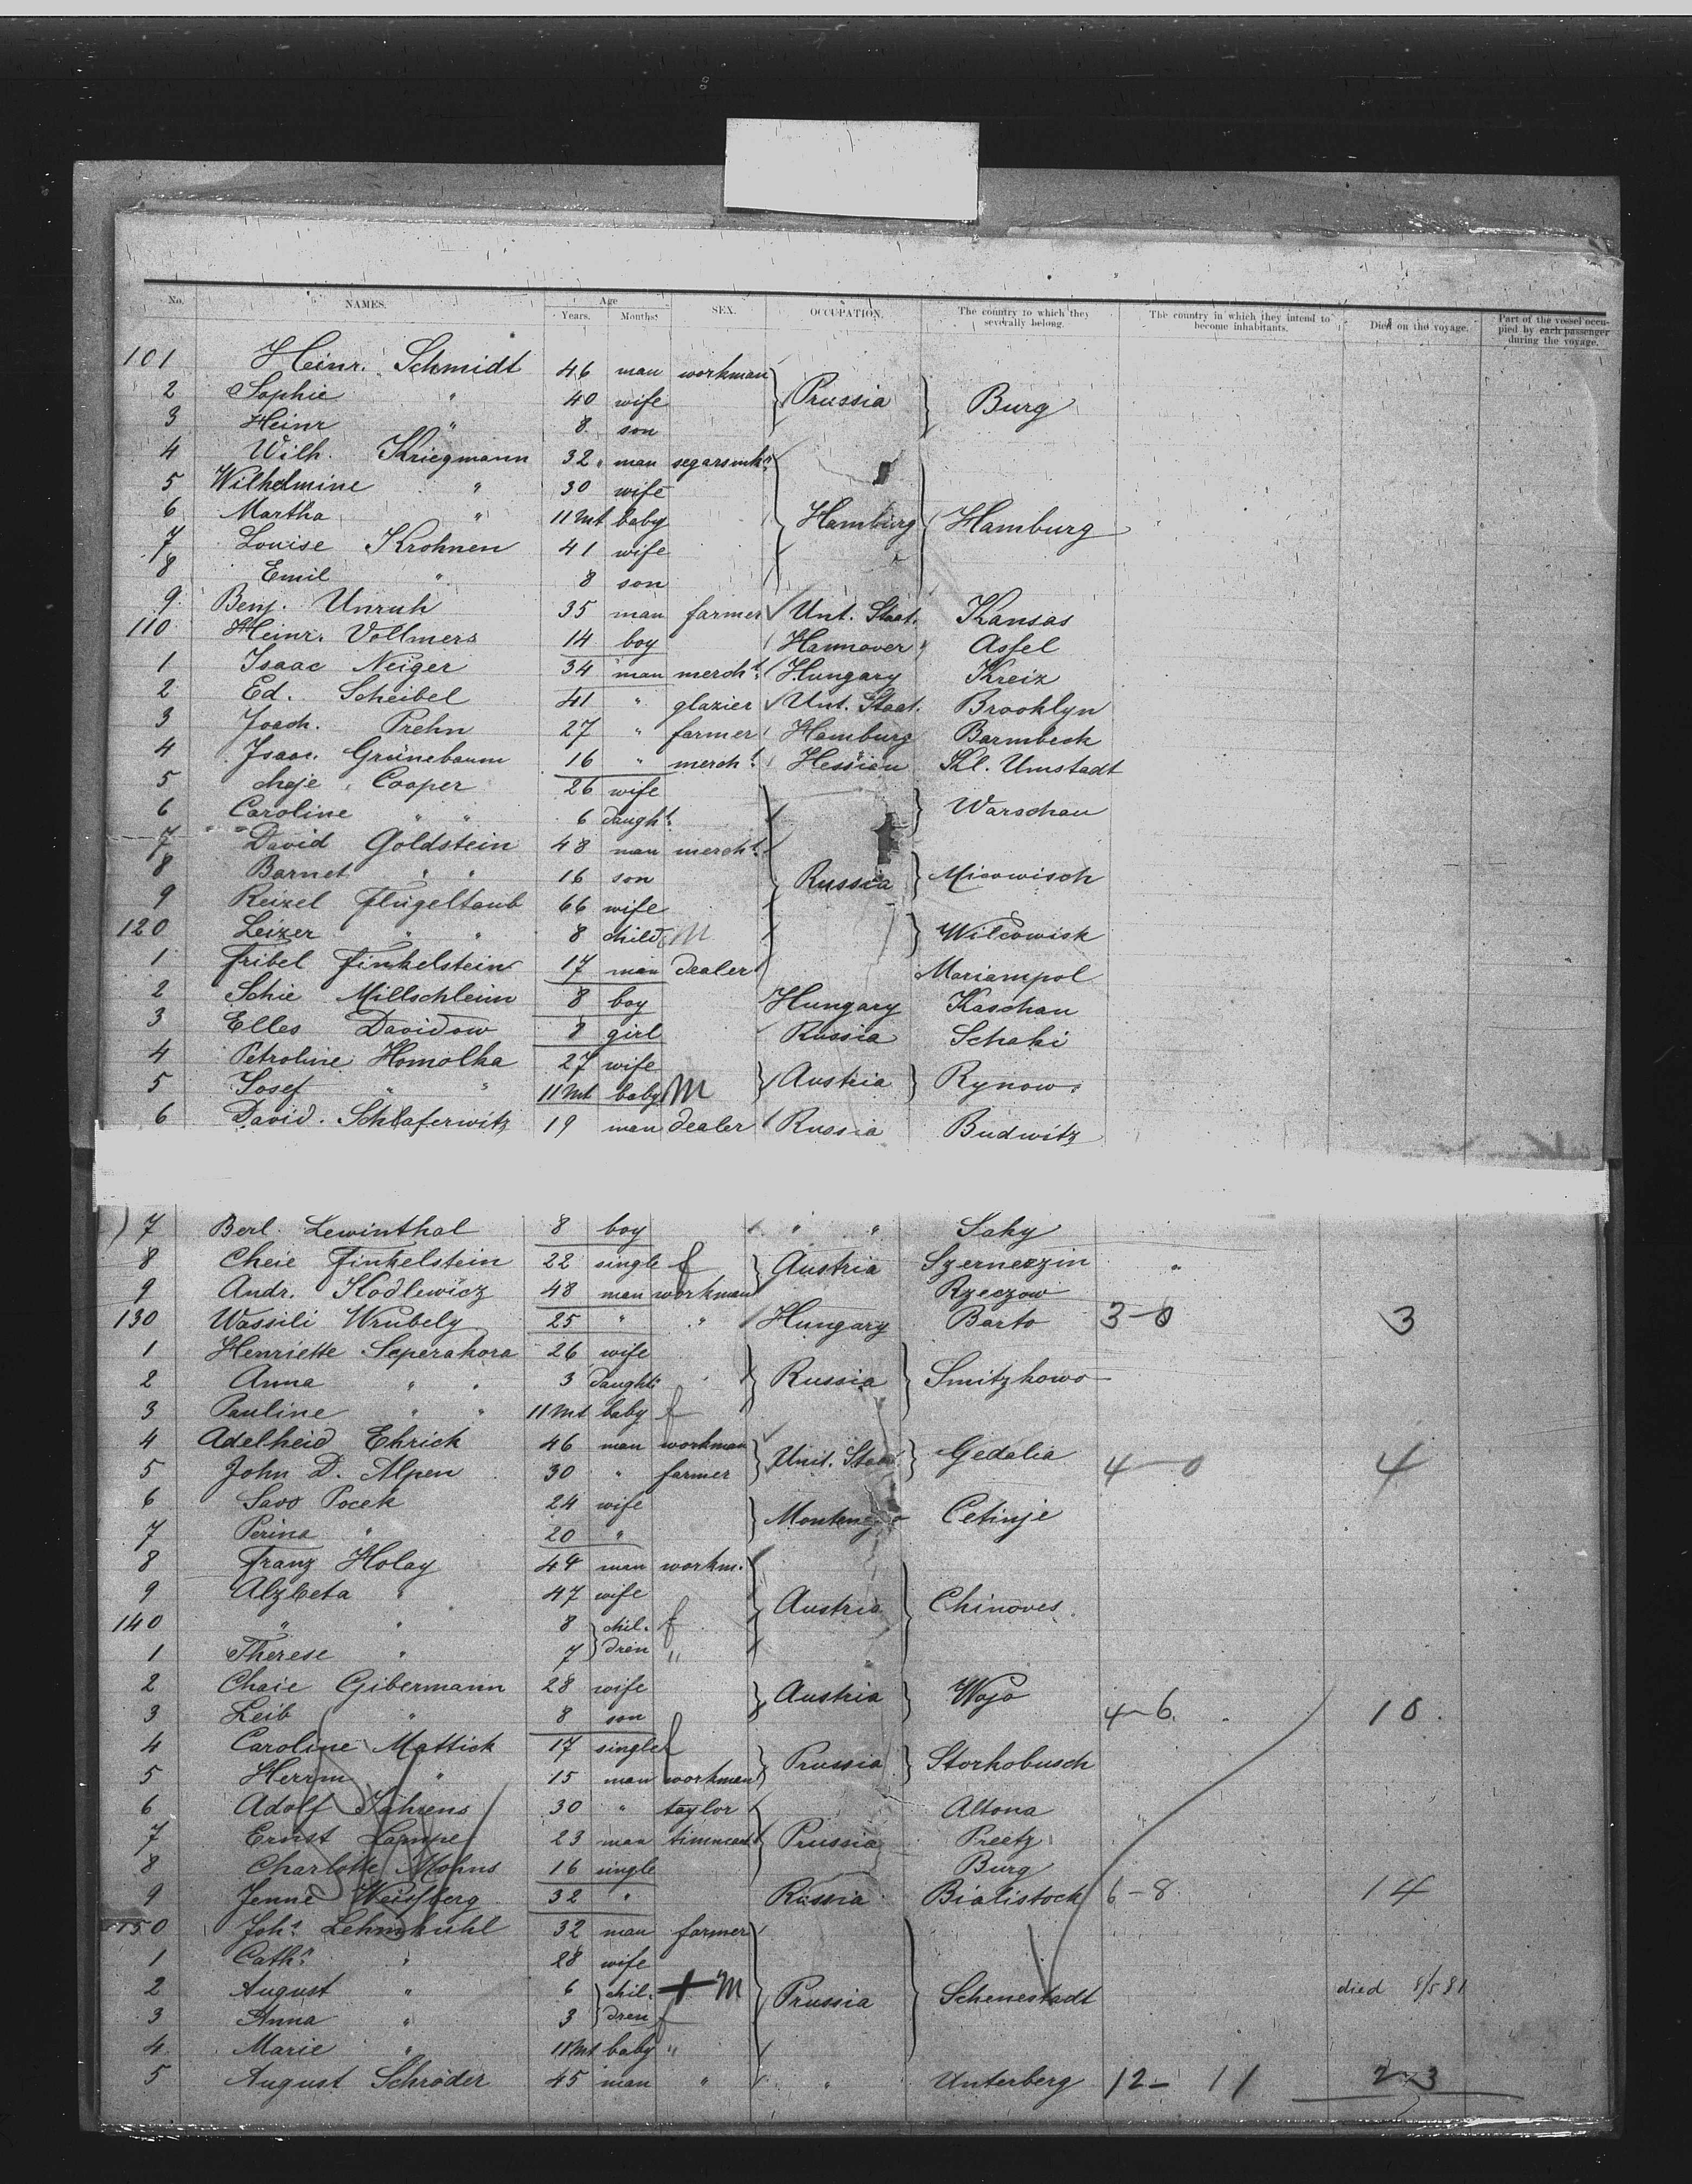 No. NAMES. Age Years. Months. SEX. OCCUPATION. The country to which they severally belong. The country in which they intend to become inhabitants. Died on the voyage. Part of the vessel occupied by each passenger during the voyage.
101 Heinr. Schmidt 46 man workman
2 Sophie " 40 wife Prussia Burg
3 Heinr " 8 son
4 Wilh. Kriegmann 32 man
5 Wilhelmine " 30 wife
6 Martha " 11 Mt baby Hamburg Hamburg
7 Louise Krohnen 41 wife
8 Emil " 8 son
9 Benj. Unruh 35 man farmer Unt. Staat. Kansas
110 Heinr. Vollmers 14 boy Hannover Asfel
1 Isaac Neiger 34 man mercht. Hungary Kreiz
2 Ed. Scheibel 41 " glazier Unt. Staat. Brooklyn
3 Joach. Prehn 27 " farmer Hamburg Barmbeck
4 Isaac Grünebaum 16 " mercht. Hessien Kl. Umstadt
5 Cooper 26 wife
6 Caroline " " 6 daught. Warschau
7 David Goldstein 48 man mercht.
8 Barnet " " 16 son Russia Micowisch
9 Reizel Flügeltaub 66 wife
120 Leizer " " 8 child M Wilcowisk
1 Fribel Finkelstein 17 man dealer Mariampol
2 Schie Millschleim 8 boy Hungary Kaschau
3 Elles Davidow 8 girl Russia Schaki
4 Petroline Homolka 27 wife
5 Josef " " 11 Mt baby M Austria Rynow
6 David. Schlaferwitz 19 man dealer Russia Budwitz
7 Berl. Lewinthal 8 boy " " Saky
8 Cheie Finkelstein 22 single f Austria Szernerzin "
9 Andr. Kodlewicz 48 man workman Rzeczow
130 Wassili Wrubely 25 " " Hungary Barto 3-0 3
1 Henriette Seperahora 26 wife
2 Anna " " 3 daught. Russia Smitzkowo
3 Pauline " " 11 Mt baby f
4 Adelheid Ehrick 46 man workman
5 John D. Alpen 30 " farmer Unit. Staat Gedalia 4-0 4
6 Savo Pocek 24 wife
7 Perina " 20 " Montenegro Cetinje
8 Franz Holay 44 man workm.
9 Alzbeta " 47 wife Austria Chinoves
140 " " 8 chil- f
1 Therese " 7 dren "
2 Chaie Gibermann 28 wife Austria Wojo
3 Leib " 8 son 4-6. 10.
4 Caroline Mattick 17 single f
5 Herrm " 15 man workman Prussia Storkobusch
6 Adolf Jahrens 30 " taylor Altona
7 Ernst Lampe 23 man Prussia Preetz
8 Charlotte Mohns 16 single Burg
9 Jenne Weissberg 32 " Russia Bialistock 6-8 14
150 Joh. Lehmkuhl 32 man farmer
1 Cath. " 28 wife
2 August " 6 chil- + M Prussia Schenestadt died 8/5 81
3 Anna " 3 dren f
4 Marie " 11 Mt baby "
5 August Schröder 45 man " " Unterberg 12- 11 23